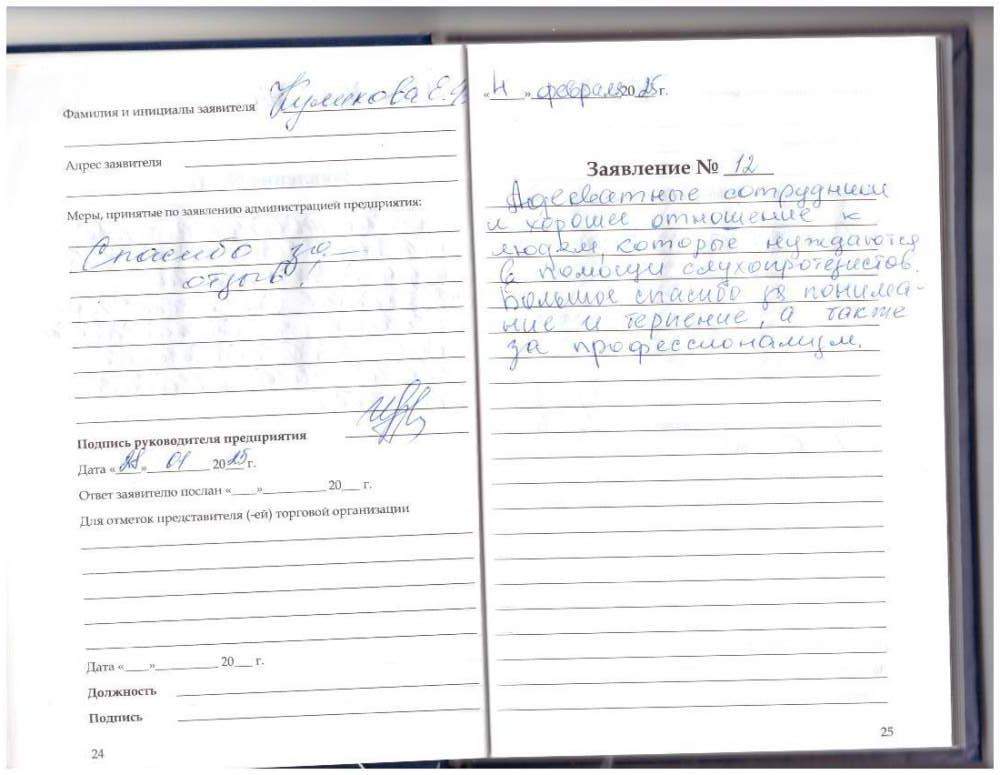 Фамилия и инициалы заявителя Куликова Е.
Адрес заявителя
Меры, принятые по заявлению администрацией предприятия:
Спасибо за
отзыв!
Подпись руководителя предприятия
Дата «28» 01 2025 г.
Ответ заявителю послан «___»__________ 20___ г.
Для отметок представителя (-ей) торговой организации
Дата «____»__________ 20___ г.
Должность
Подпись
24
«4» февраля 2025 г.
Заявление № 12
Адекватные сотрудники
и хорошее отношение к
людям, которые нуждаются
в помощи слухопротезистов.
Большое спасибо за понима-
ние и терпение, а также
за профессионализм.
25